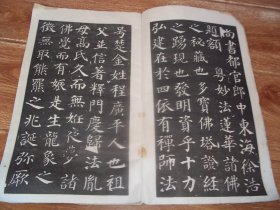 尚書都官郎中東海徐浩
題額 粵妙法蓮華諸佛
之秘藏也多寶佛塔證經
之踴現也發明資乎十力
弘建在於四依有禪師法
号楚金姓程廣平人也祖
父並信著釋門慶歸法胤
母高氏久而無妊夜夢諸
佛覺而有娠是生龍象之
徵無取熊羆之兆誕彌厥